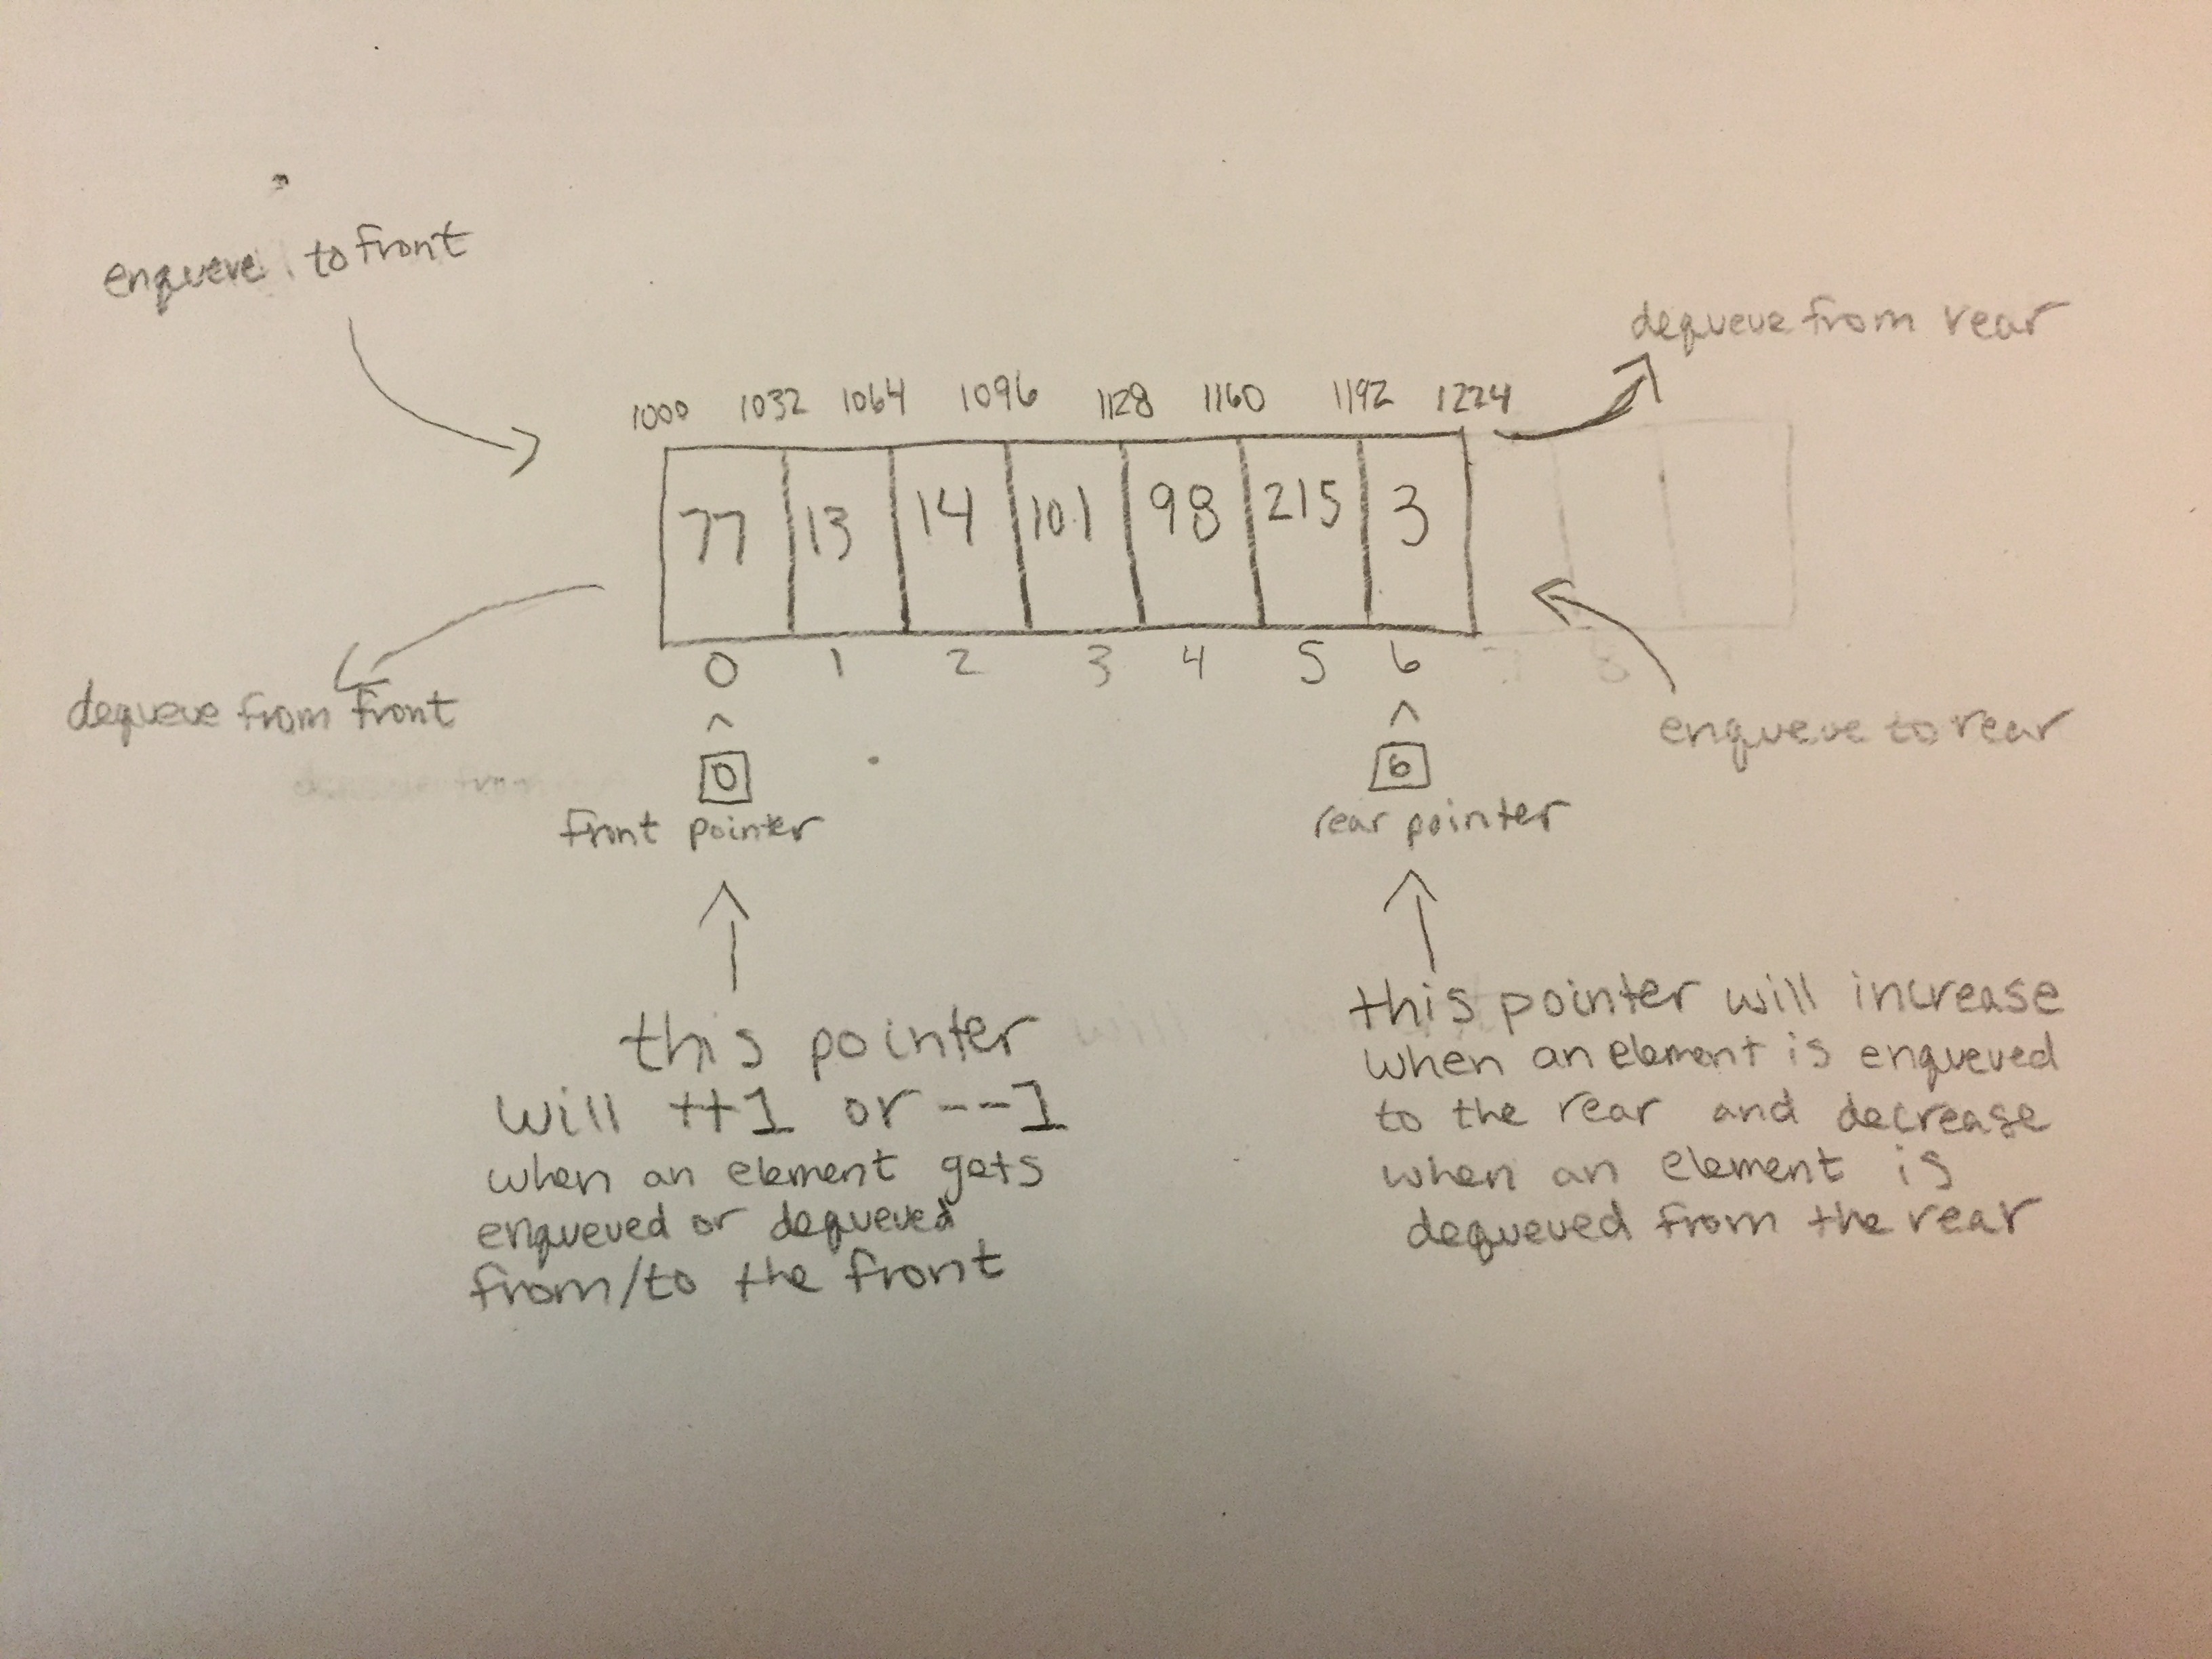 enqueue to front
dequeue from rear
1000 1032 1064 1096 1128 1160 1192 1224
77 13 14 101 98 215 3
0 1 2 3 4 5 6
^ ^
0 6
dequeue from front
enqueue to rear
front pointer
rear pointer
this pointer
will ++1 or --1
when an element gets
enqueued or dequeued
from/to the front
this pointer will increase
when an element is enqueued
to the rear and decrease
when an element is
dequeued from the rear